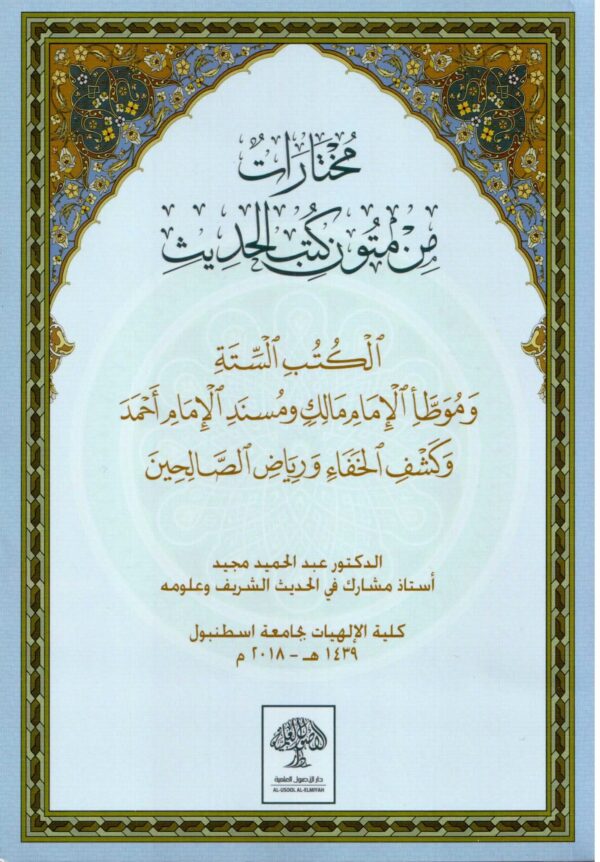 مُختَارَاتٌ
مِنْ مُتُونِ كُتُبِ الحَدِيثِ
الْكُتُبِ السِّتَةِ
وَمُوَطَّأِ الْإِمَامِ مَالِكِ وَمُسنَدِ الْإِمَامِ أَحْمَدَ
وَكَشْفِ الخَفَاءِ وَرِيَاضِ الصَّالِحِينَ
الدكتور عبد الحميد مجيد
أستاذ مشارك في الحديث الشريف وعلومه
كلية الإلهيات بجامعة اسطنبول
١٤٣٩ هـ - ٢٠١٨ م
دار الأصول العلمية
دار الأصول العلمية
AL-USOOL AL-ELMIYAH